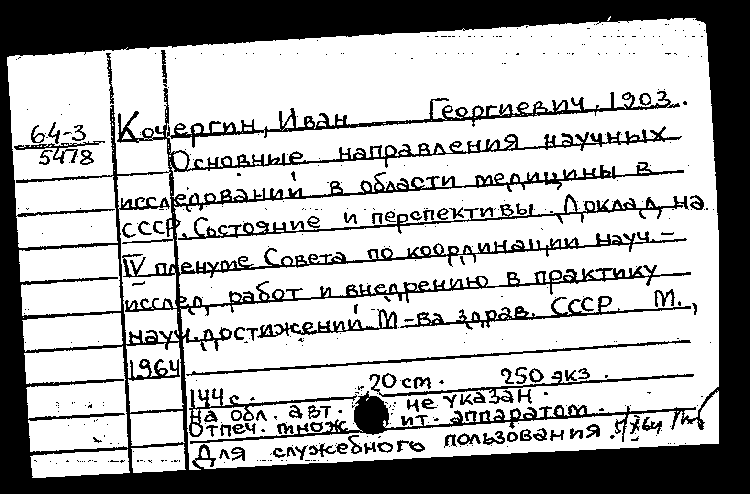 64-3
5478
Кочергин, Иван Георгиевич, 1903.
Основные направления научных
исследований в области медицины в
СССР. Состояние и перспективы. Доклад на
IV пленуме Совета по координации науч.-
исслед. работ и внедрению в практику
науч. достижений М-ва здрав. СССР. М.,
1964.
144 с. 20 cm. 250 экз.
На обл. авт. не указан.
Отпеч. множ ит. аппаратом.
Для служебного пользования.